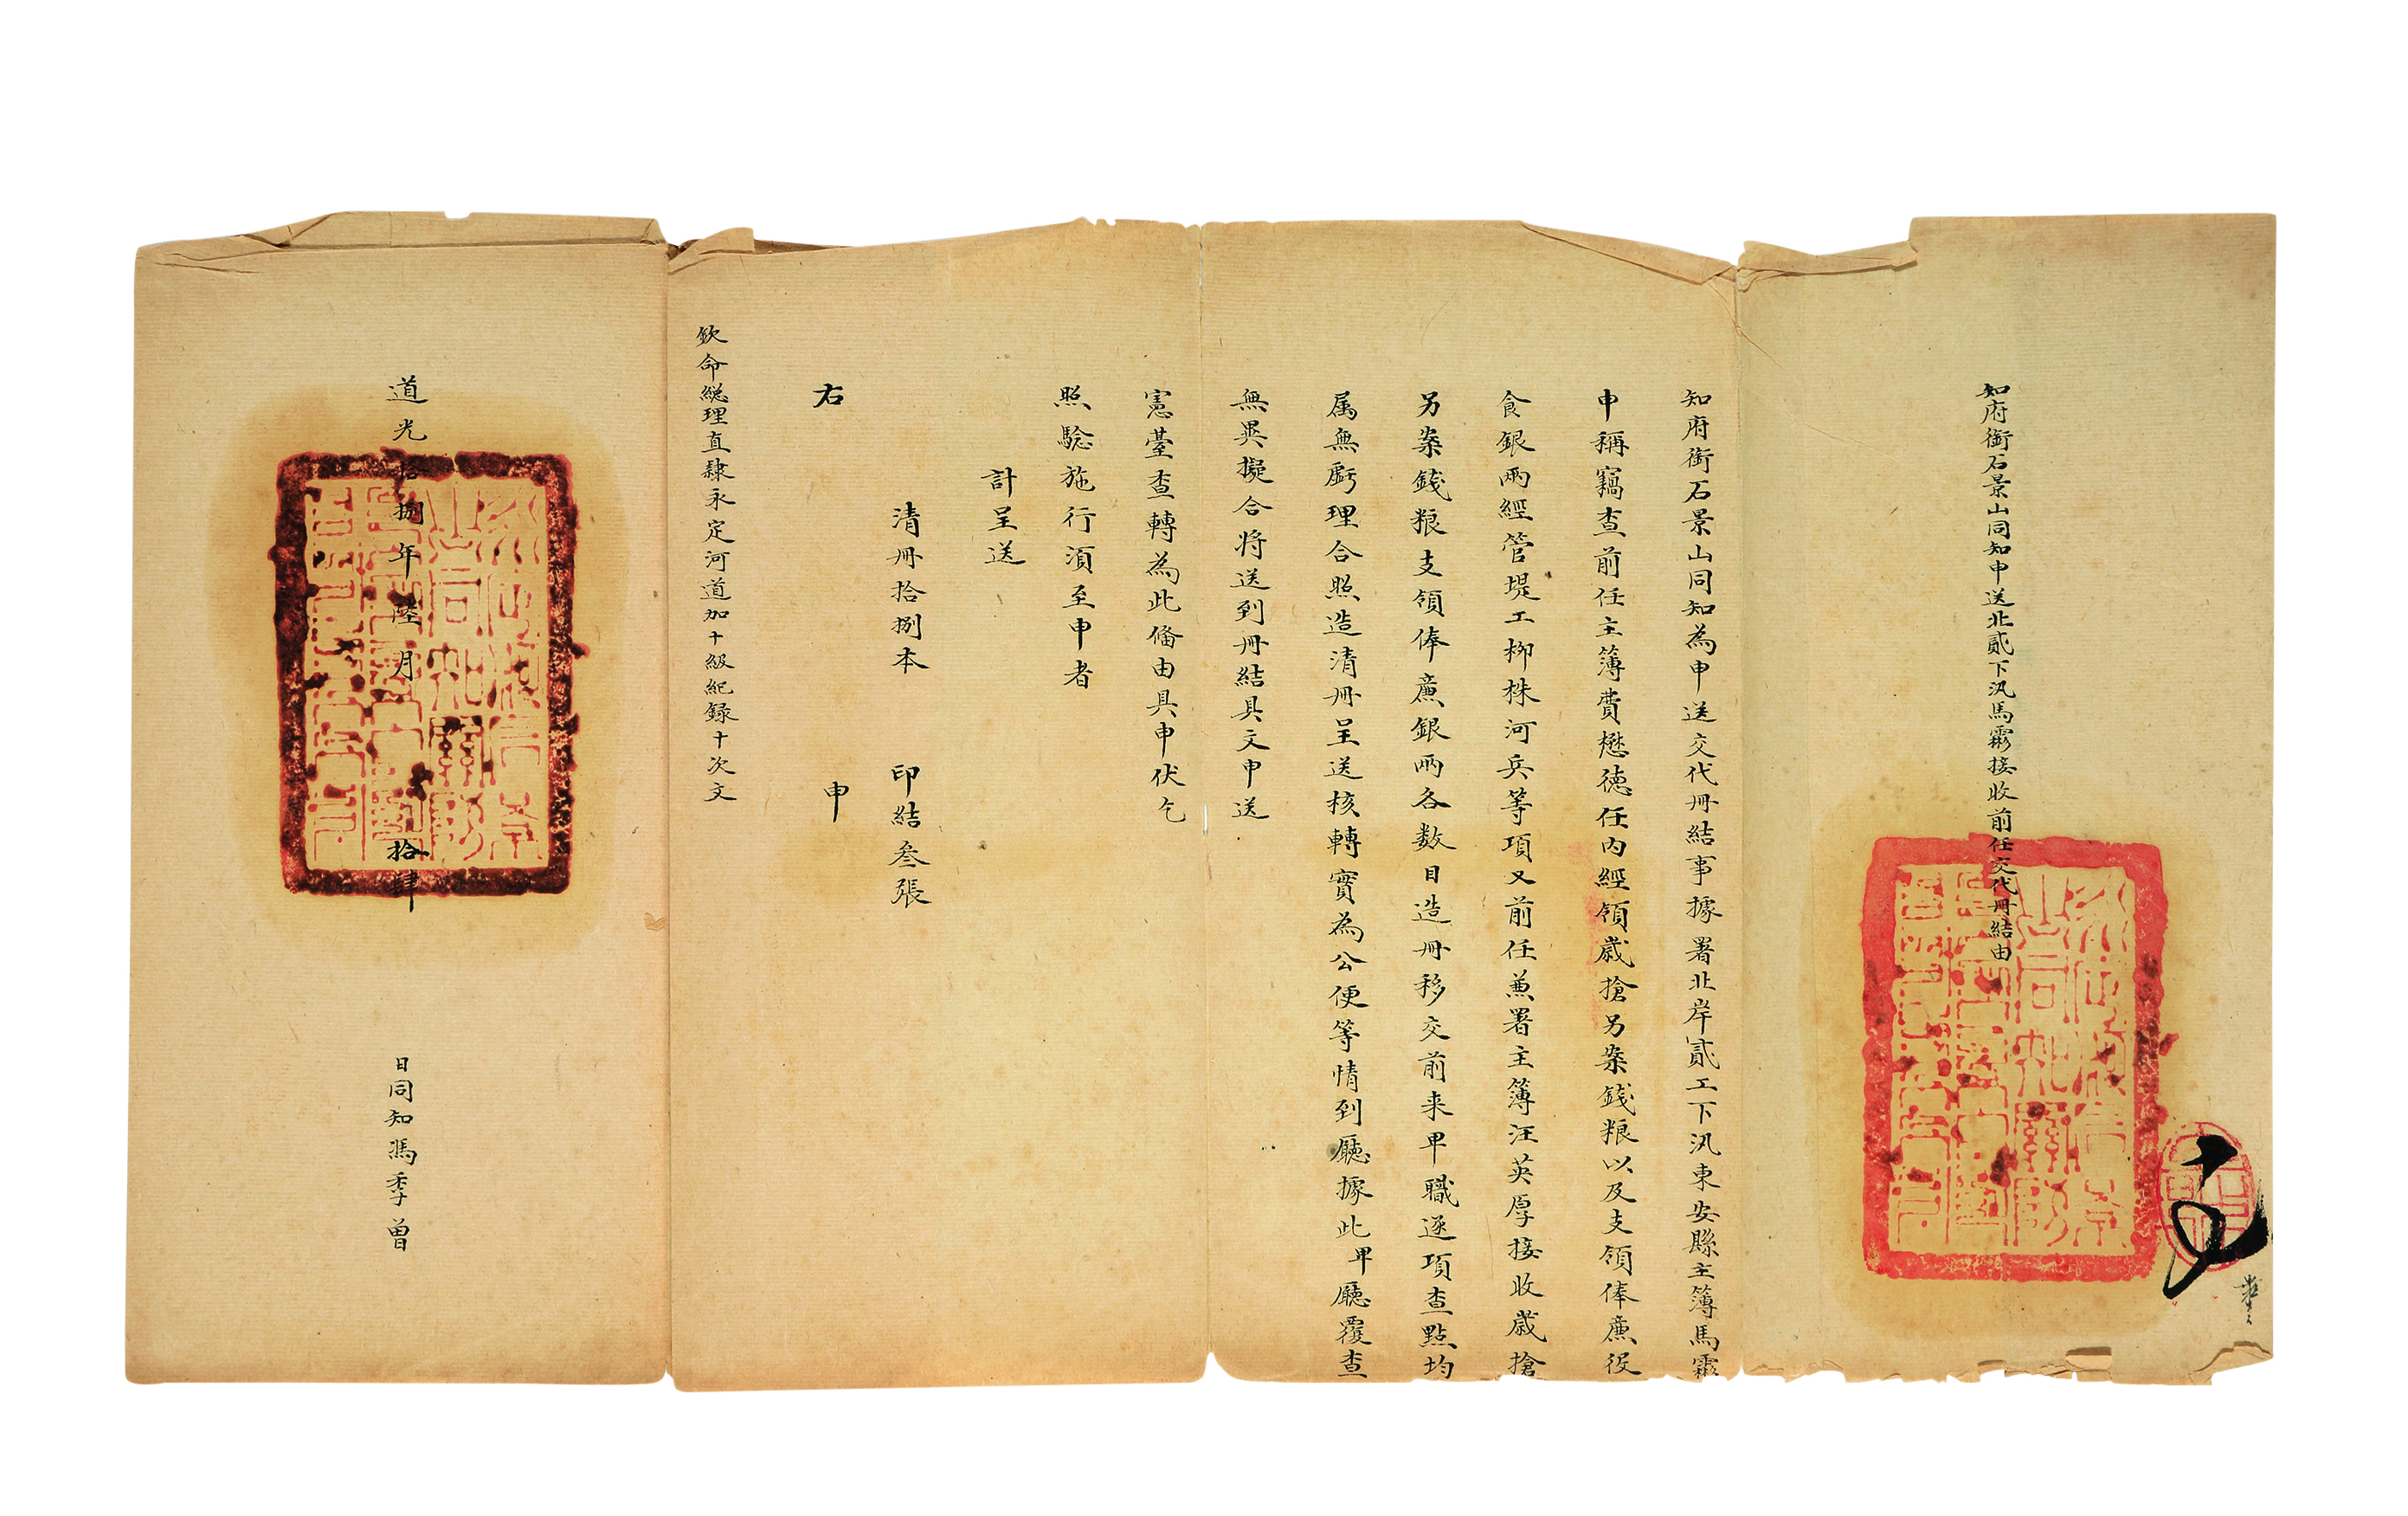 知府銜石景山同知申送北貳下汛馬霱接收前任交代冊結由
知府銜石景山同知為申送交代冊結事據署北岸貳工下汛東安縣主簿馬霱
申稱竊查前任主簿費懋德任內經領歲搶另案錢粮以及支領俸廉役
食銀兩經管堤工柳株河兵等項又前任兼署主簿汪英厚接收歲搶
另案錢粮支領俸廉銀兩各數目造冊移交前来卑職逐項查點均
属無虧理合照造清冊呈送核轉實為公便等情到廳據此卑廳覆查
無異擬合將送到冊結具文申送
憲臺查轉為此偹由具申伏乞
照驗施行湏至申者
計呈送
清冊拾捌本 印結叁張
右 申
欽命総理直隸永定河道加十級紀録十次文
道光拾捌年陸月拾肆日同知馮季曾